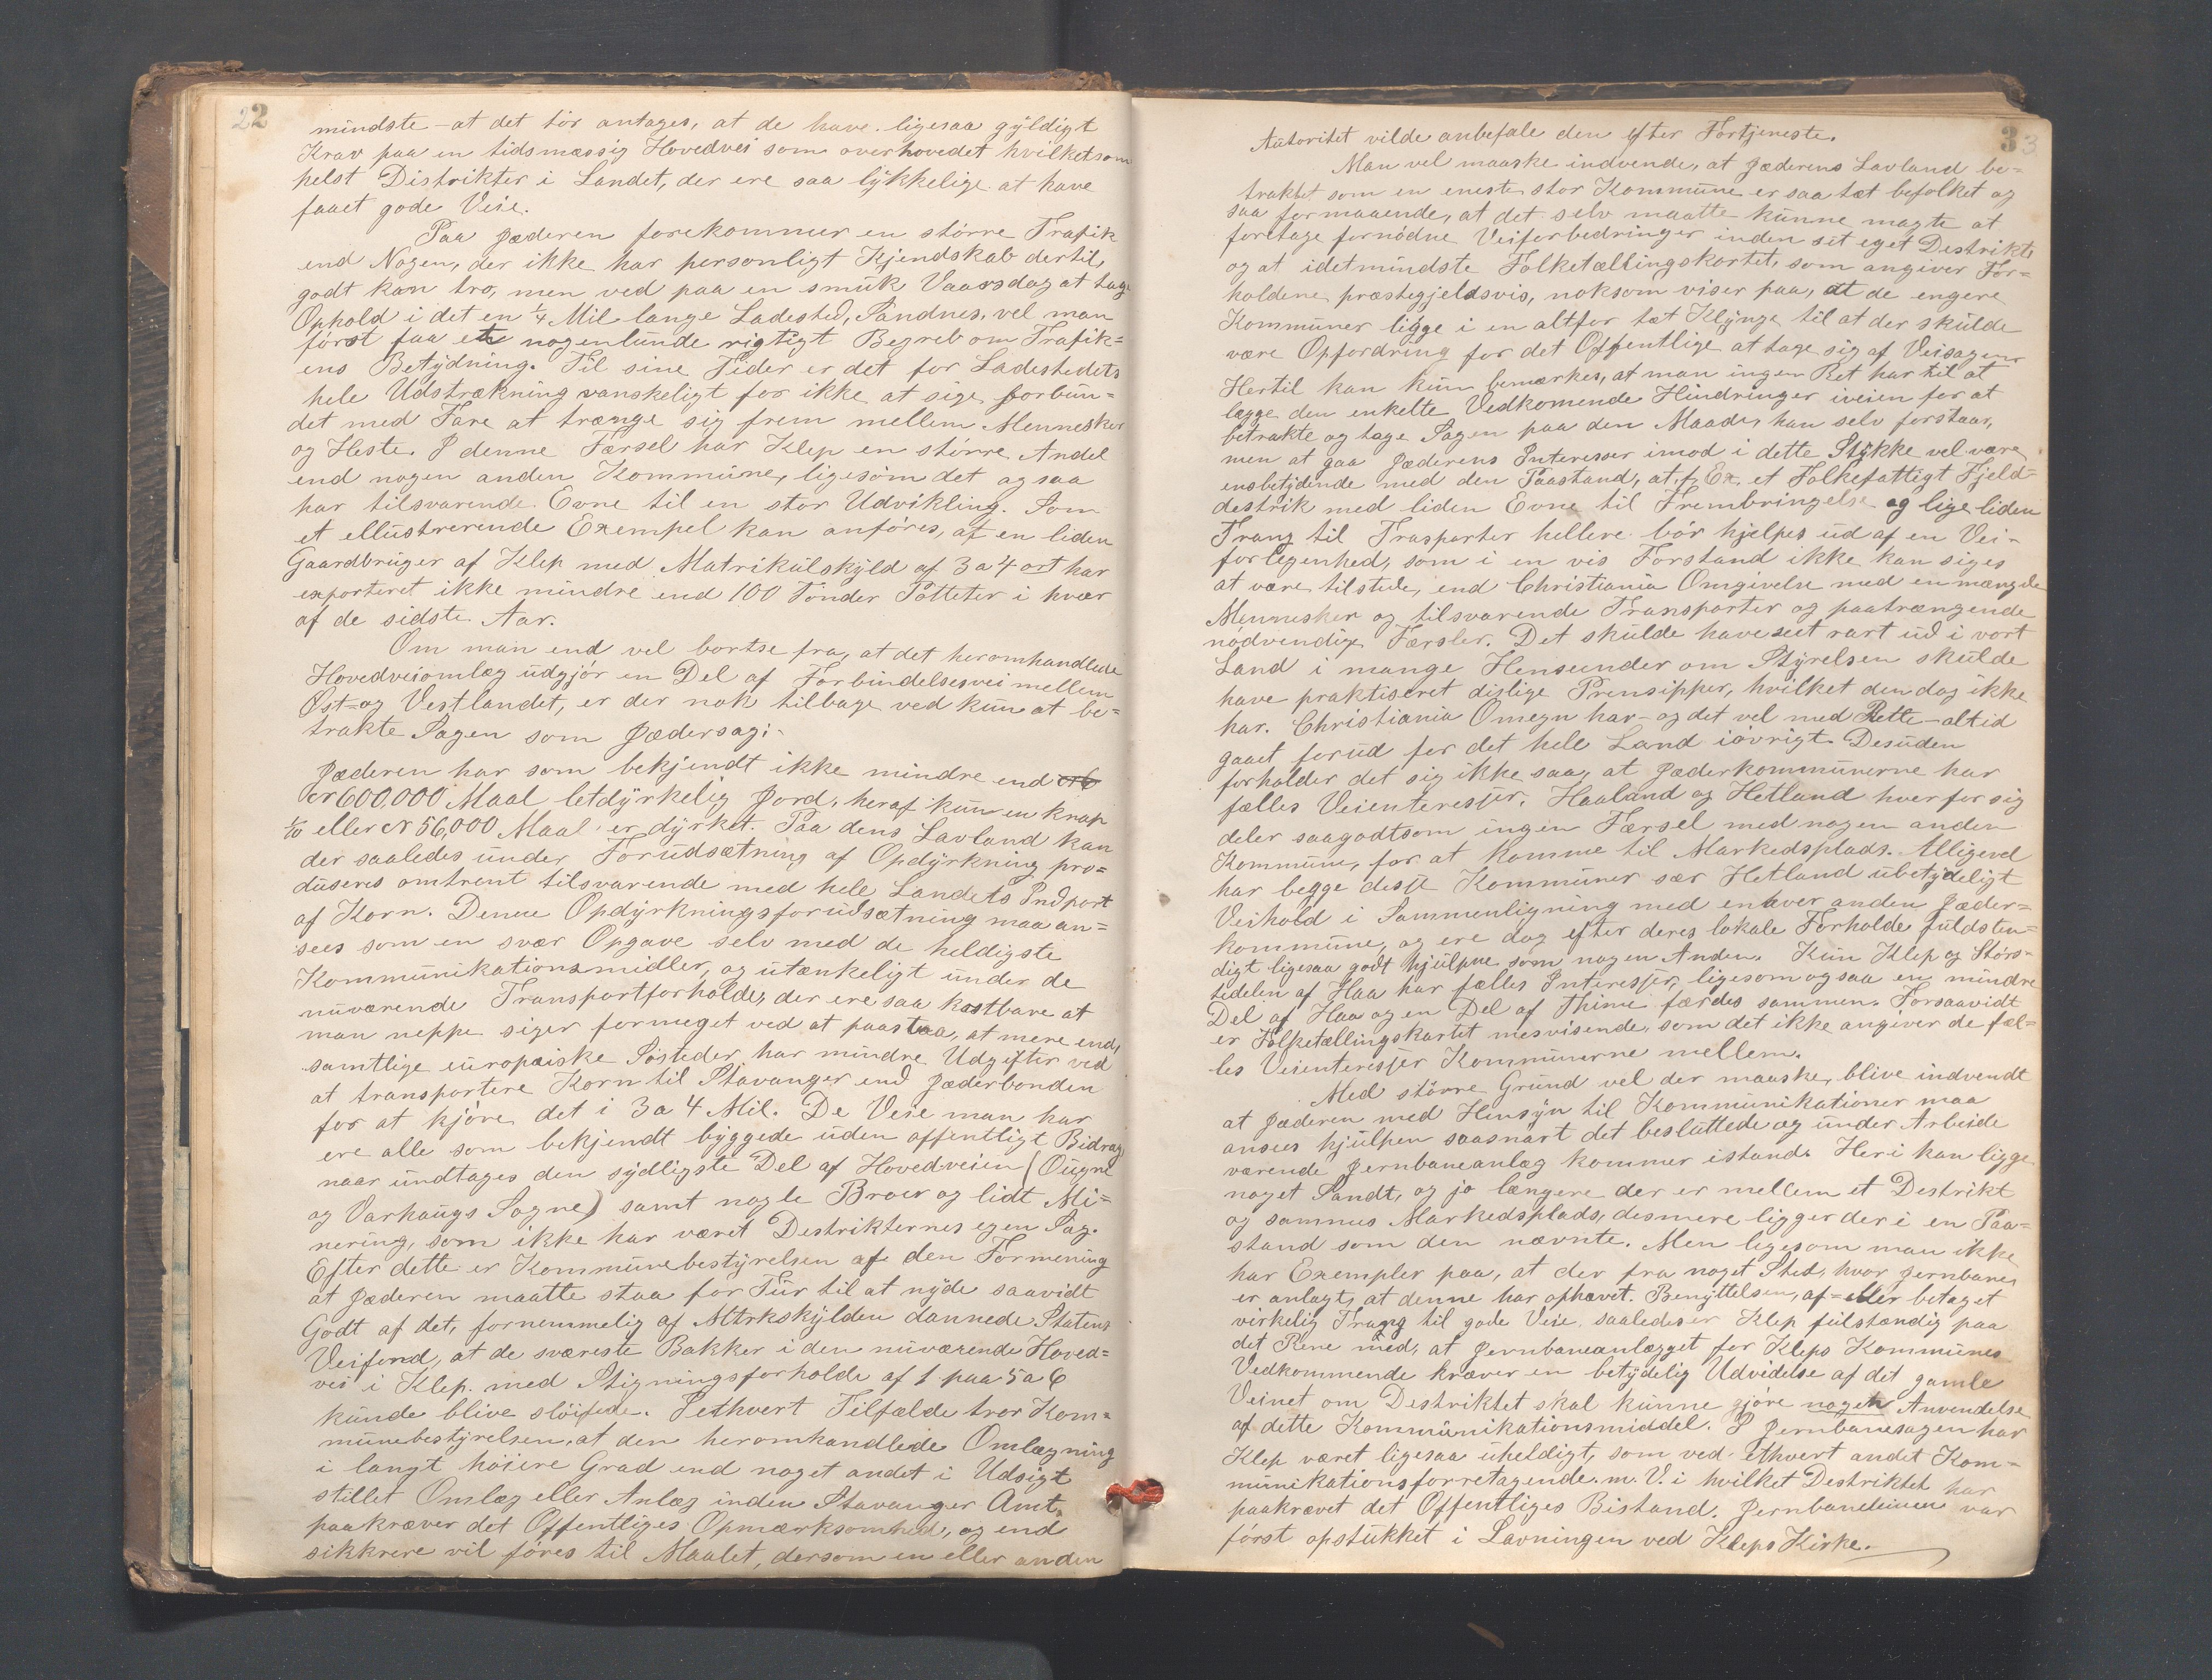 22
mindste - at det tör antages, at de have ligesaa gyldigt
Krav paa en tidsmæssig Hovedvei som overhovedet hvilketsom
helst Distrikter i Landet, der ere saa lykkelige at have
faaet gode Veie.
Paa Jæderen forekommer en större Trafik
end Nogen, der ikke har personligt Kjendskab dertil,
godt kan tro, men ved paa en smuk Vaarsdag at tage
Ophold i det en 1/4 Mil lange Ladested, Sandnes, vel man
först faa et nogenlunde rigtigt Begreb om Trafik=
ens Betydning. Til sine Tider er det for Ladestedets
hele Udstrækning vanskeligt for ikke at sige forbun=
det med Fare at trænge sig frem mellem Mennesker
og Heste. I denne Færsel har Klep en större Andel
end nogen anden Kommune, ligesom det ogsaa
har tilsvarende Evne til en stor Udvikling. Som
et ellustrerende Exempel kan anföres, at en liden
Gaardbruger af Klep med Matrikulskyld af 3 a 4 ort har
exporteret ikke mindre end 100 Tönder Potteter i hver
af de sidste Aar.
Om man end vel bortse fra, at det heromhandlede
Hovedveiomlæg udgjör en Del af Forbindelsesvei mellem
Öst= og Vestlandet, er der nok tilbage ved kun at be=
trakte Sagen som Jædersag:-
Jæderen har som bekjendt ikke mindre end
cr 600,000 Maal letdyrkelig Jord, heraf kun en knap
1/10 eller cr 56,000 Maal er dyrket. Paa dens Lavland kan
der saaledes under Forudsætning af Opdyrkning pro=
duseres omtrent tilsvarende med hele Landets Indport
af Korn. Denne Opdyrkningsforudsætning maa an=
sees som en svær Opgave selv med de heldigste
Kommunikationsmidler, og utænkeligt under de
nuværende Transportforholde, der ere saa kostbare at
man neppe siger formeget ved at paastaa, at mere end
samtlige europæiske Sösteder har mindre Udgifter ved
at transportere Korn til Stavanger end Jæderbonden
for at kjöre det i 3 a 4 Mil. De Veie man har
ere alle som bekjendt byggede uden offentligt Bidrag
naar undtages den sydligste Del af Hovedveien (Ougne
og Varhaugs Sogne) samt nogle Broer og lidt Mi=
nering, som ikke har været Destrikternes egen Sag.
Efter dette er Kommunebestyrelsen af den Formening
at Jæderen maatte staa for Tur til at nyde saavidt
Godt af det, fornemmelig af Mtrkskylden dannede Statens
Veifond, at de sværeste Bakker i den nuværende Hoved=
vei i Klep med Stigningsforholde af 1 paa 5 a 6
kunde blive slöifede. I ethvert Tilfælde tror Kom=
munebestyrelsen, at den heromhandlede Omlægning
i langt höiere Grad end noget andet i Udsigt
stillet Omlæg eller Anlæg inden Stavanger Amt,
paakræver det Offentliges Opmærksomhed, og end
sikkrere vil föres til Maalet, dersom en eller anden
33
Autoritet vilde anbefale den efter Fortjeneste.
Man vel maaske indvende, at Jæderens Lavland be=
traktet som en eneste stor Kommune er saa tæt befolket og
saa formaaende, at det selv maatte kunne magte at
foretage fornödne Veiforbedringer inden sit eget Destrikt,
og at idetmindste Folketællingskartet, som angiver For=
holdene præstegjeldsvis, noksom viser paa, at de engere
Kommuner ligge i en altfor tæt Klynge til at der skulde
være Opfordring for det Offentlige at tage sig af Veisagen.
Hertil kan kun bemærkes, at man ingen Ret har til at
lægge den enkelte Vedkomende Hindringer iveien for at
betrakte og tage Sagen paa den Maade, han selv forstaar,
men at gaa Jæderens Interesser imod i dette Stykke vel være
ensbetydende med den Paastand, at f. Ex. et Folkefattigt Fjeld=
destrik med liden Evne til Frembringelse og lige liden
Trang til Trasporter hellere bör hjelpes ud af en Vei=
forlegenhed, som i en vis Forstand ikke kan siges
at være tilstede, end Christiania Omgivelse med en mængde
Mennesker og tilsvarende Transporter og paatrængende
nödvendige Færsler. Det skulde have seet rart ud i vort
Land i mange Henseender om Styrelsen skulde
have praktiseret dislige Prensipper, hvilket den dog ikke
har. Christiania Omegn har - og det vel med Rette - altid
gaaet forud for det hele Land iövrigt. Desuden
forholder det sig ikke saa, at Jæderkommunerne har
fælles Veienteresser. Haaland og Hetland hver for sig
deler saagodtsom ingen Færsel med nogen anden
Kommune, for at komme til Markedsplads. Alligevel
har begge disse Kommuner sær Hetland ubetydeligt
Veihold i Sammenligning med enhver anden Jæder=
kommune, og ere dog efter deres lokale Forholde fuldsten=
digt ligesaa godt hjulpne som nogen Anden. Kun Klep og Störs=
tedelen af Haa har fælles Interesser, ligesom ogsaa en mindre
Del af Haa og en Del af Thime færdes sammen. Forsaavidt
er Folketællingskartet mesvisende, som det ikke angiver de fæl=
les Veienteresser Kommunerne mellem.
Med större Grund vel der maaske, blive indvendt
at Jæderen med Hensyn til Kommunikationer maa
ansees hjulpen saasnart det besluttede og under Arbeide
værende Jernbaneanlæg kommer istand. Heri kan ligge
noget Sandt, og jo længere der er mellem et Destrikt
og sammes Markedsplads, desmere ligger der i en Paa=
stand som den nævnte. Men ligesom man ikke
har Exempler paa, at der fra noget Sted, hvor Jernbanen
er anlagt, at denne har ophævet Benyttelsen, af= eller betaget
virkelig Trang til gode Veie, saaledes er Klep fulstændig paa
det Rene med, at Jernbaneanlægget for Kleps Kommunes
Vedkommende kræver en betydelig Udvidelse af det gamle
Veinet om Destriktet skal kunne gjöre nogen Anvendelse
af dette Kommunikationsmiddel. I Jernbanesagen har
Klep været ligesaa uheldigt, som ved ethvert andet Kom=
munikationsforretagende m. V. i hvilket Destriktet har
paakrævet det Offentliges Bistand. Jernbanelinien var
först opstukket i Lavningen ved Kleps Kirke.